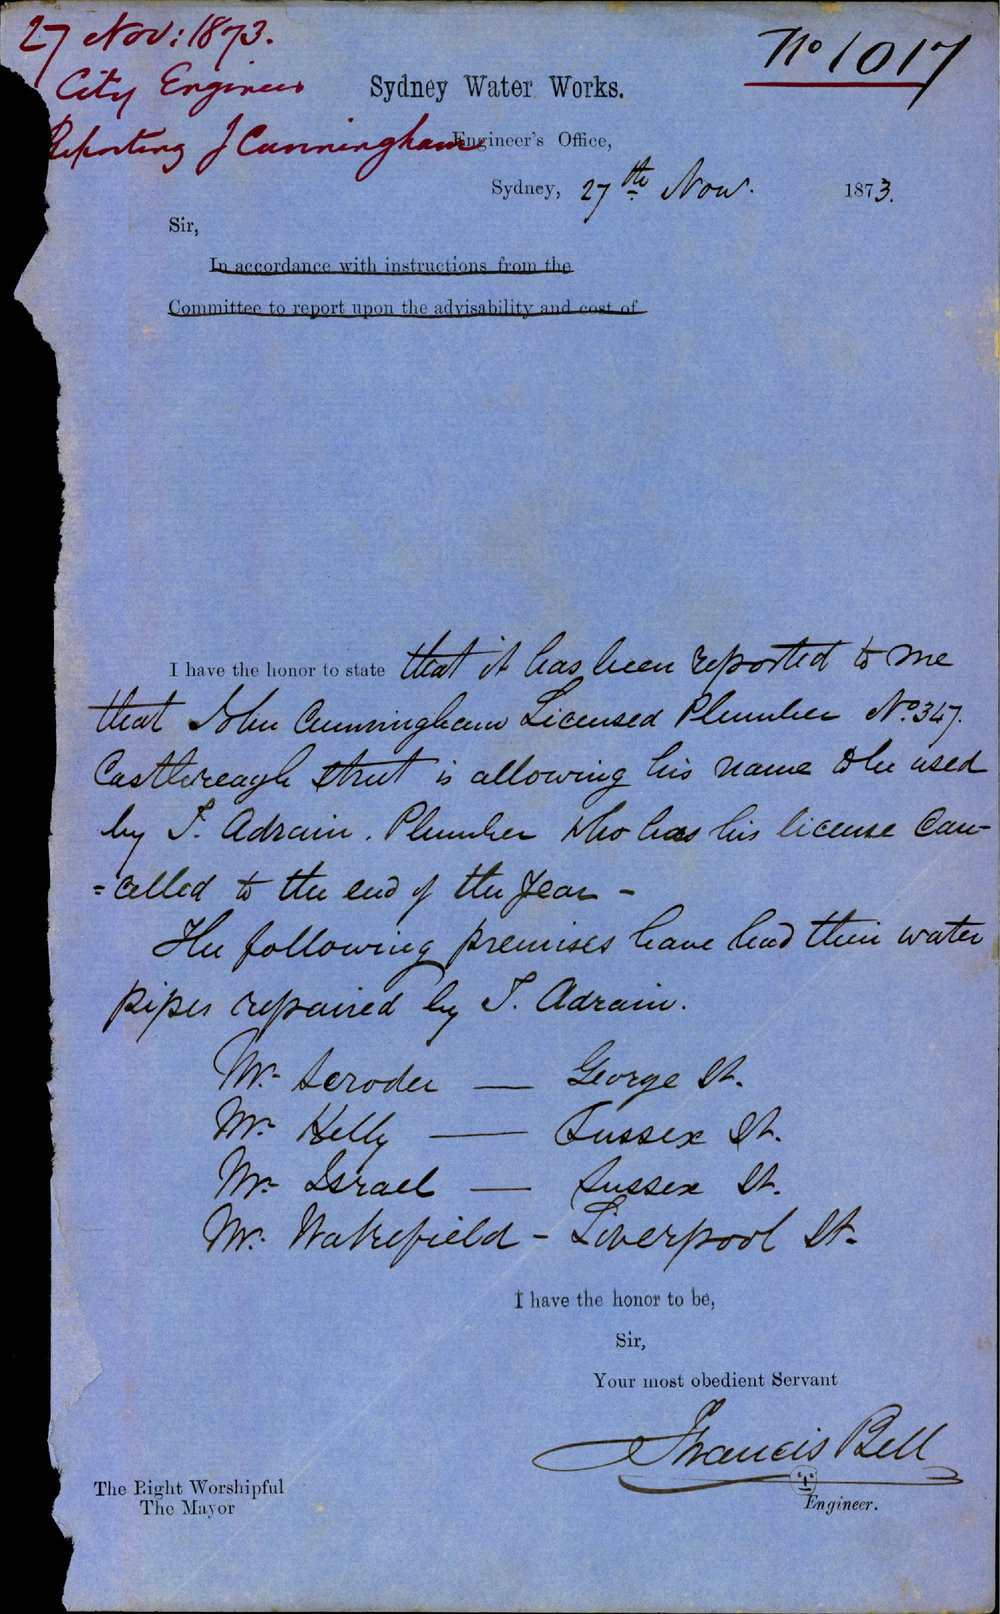 27 Nov: 1873.
No 1017
City Engineer
Reporting J Cunningham
Sydney Water Works.
Engineer's Office,
Sydney, 27th Nov. 1873.
Sir,
In accordance with instructions from the
Committee to report upon the advisability and cost of
I have the honor to state that it has been reported to me
that John Cunningham Licensed Plumber No. 347.
Castlereagh Street is allowing his name to be used
by T. Adrain. Plumber who has his license Can-
=celled to the end of the year -
The following premises have had their water
pipes repaired by T. Adrain.
Mr. Scroder — George St.
Mr. Kelly — Sussex St.
Mr. Israel — Sussex St.
Mr. Wakefield - Liverpool St.
I have the honor to be,
Sir,
Your most obedient Servant
Francis Bell
Engineer.
The Right Worshipful
The Mayor